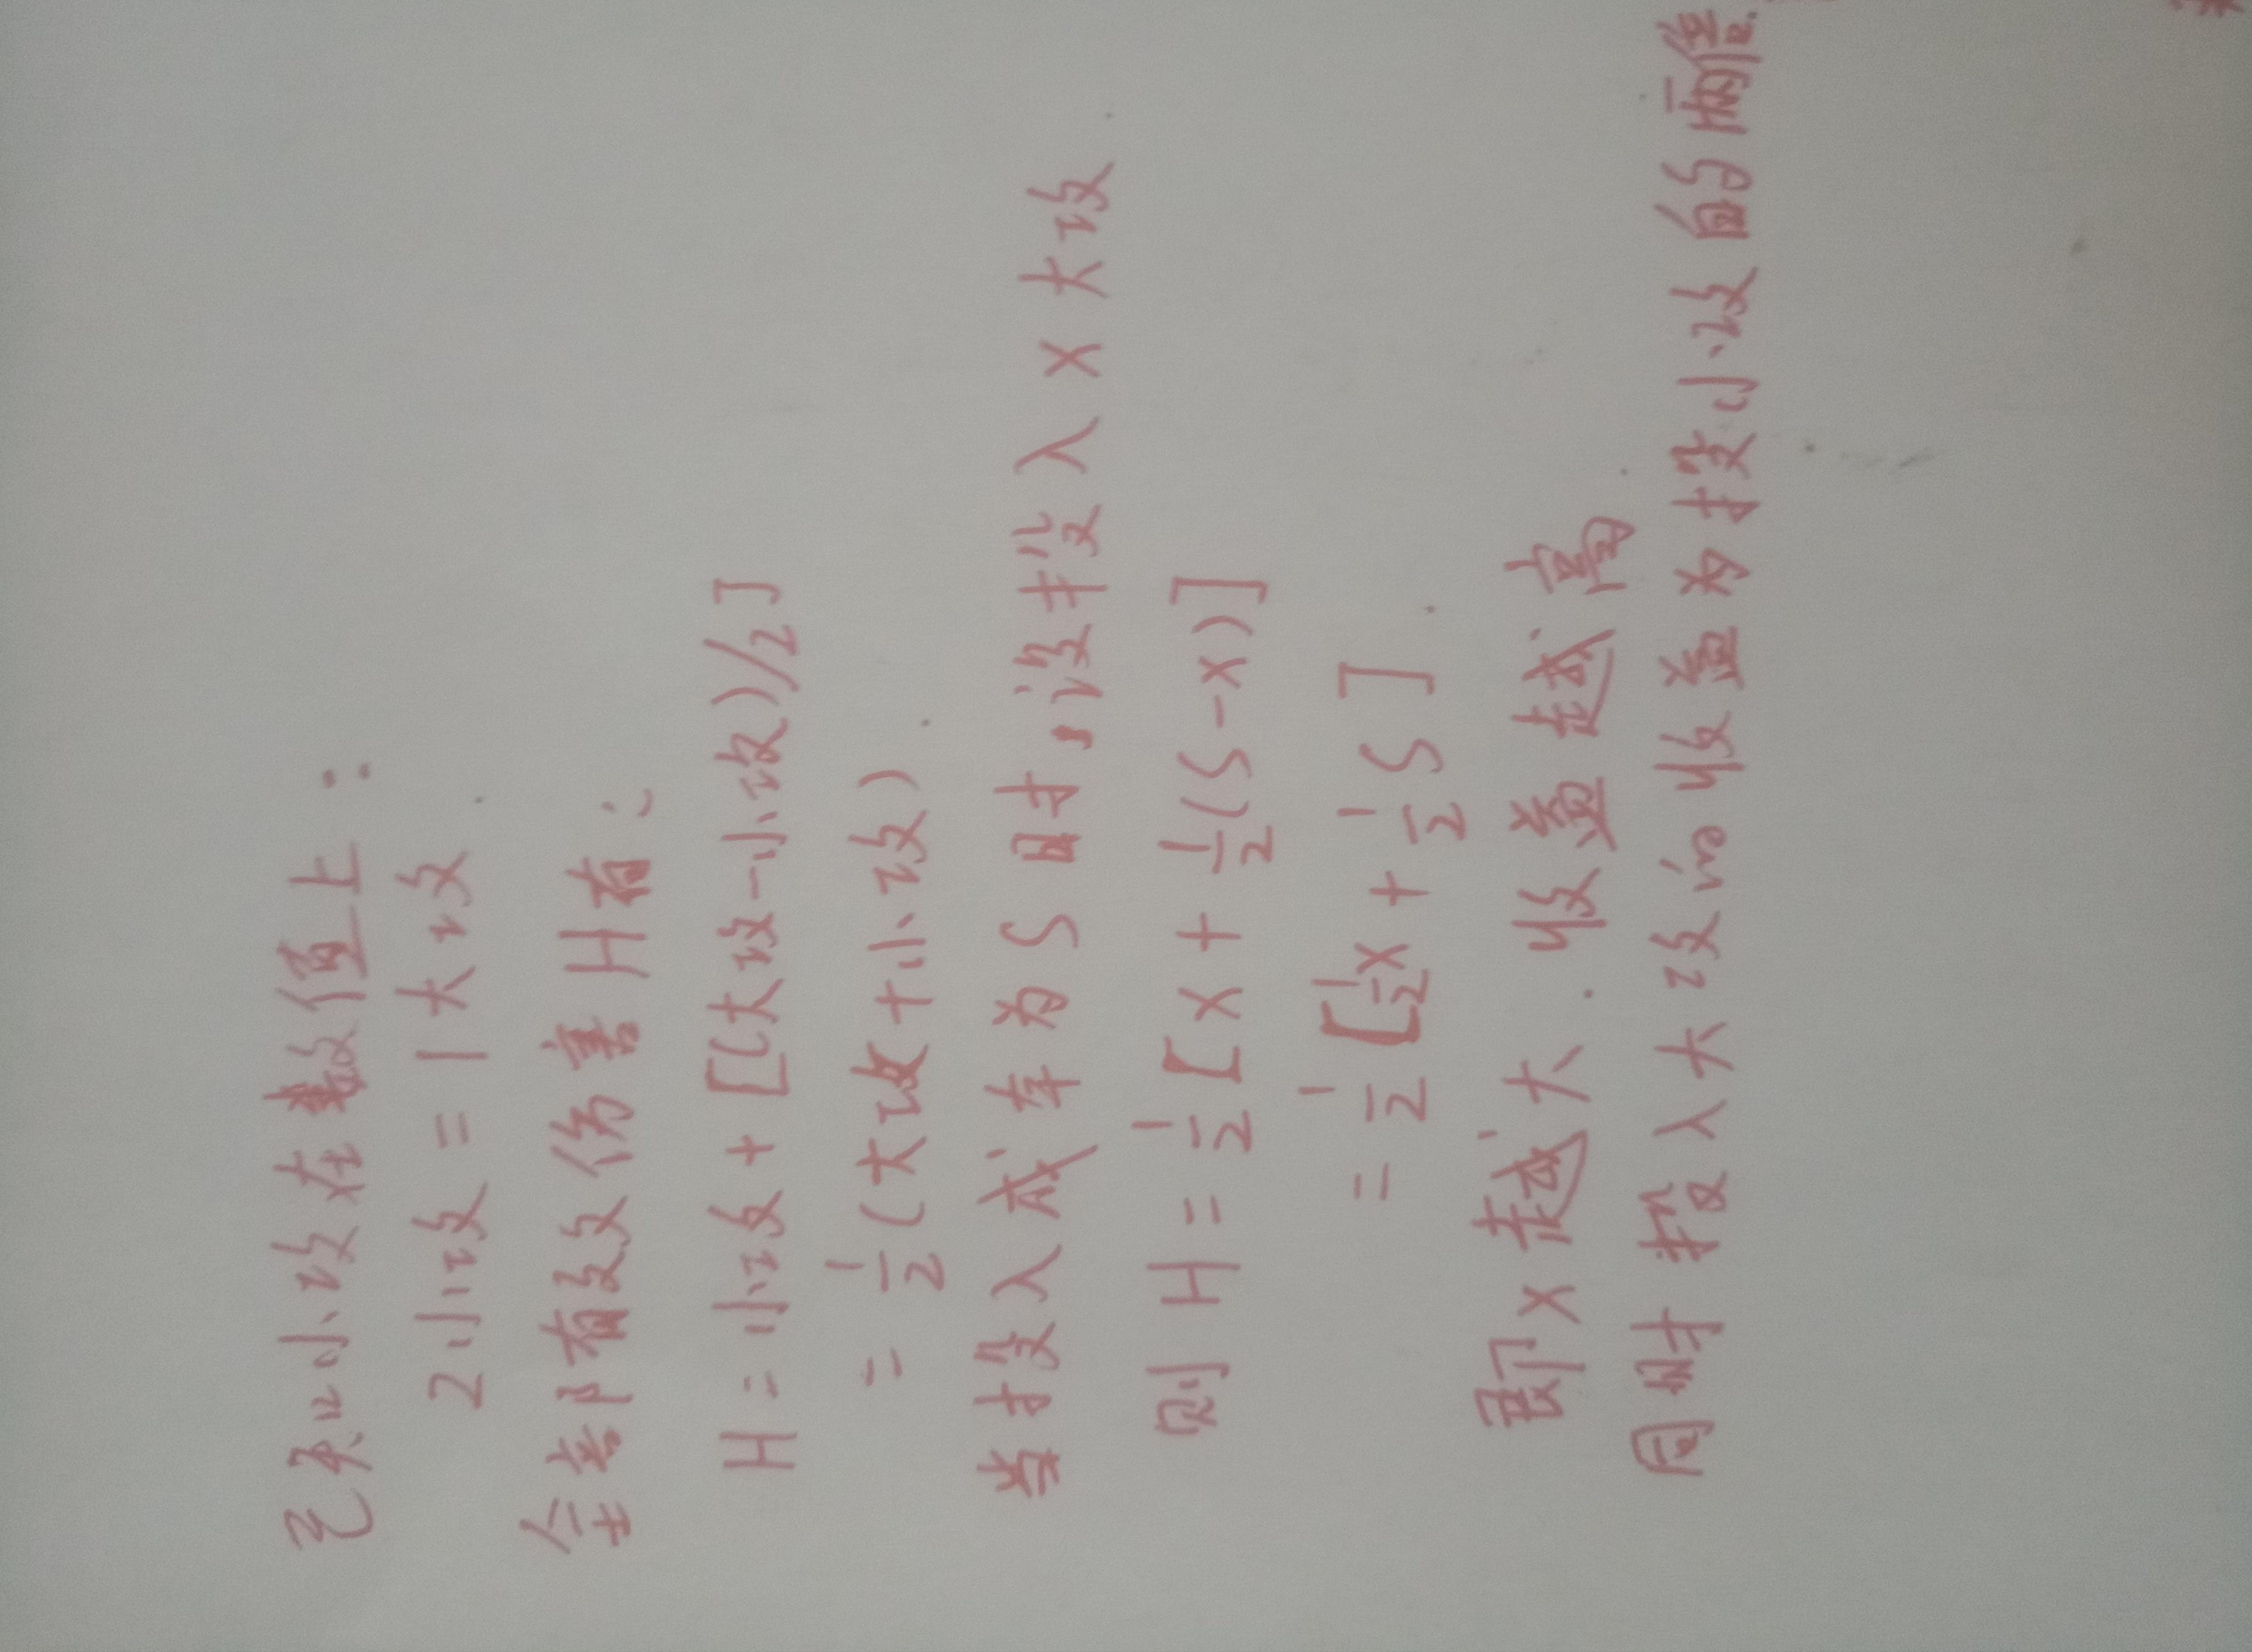 已知小攻在数值上:
2小攻 = 1大攻
全考阝有效伤害H有:
H = 小攻 + [(大攻-小攻)/2]
= 1/2 (大攻+小攻)
当投入成本为S时,设投入X大攻
则 H = 1/2 [X + 1/2(S-X)]
= 1/2 [1/2X + 1/2S]
即X越大.收益越高
同时投入大攻的收益为投小攻的两倍.